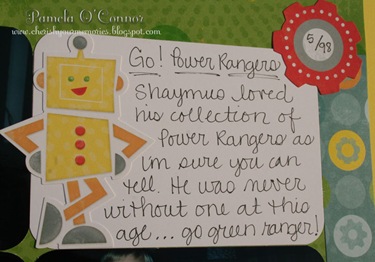 Pamela O'Connor
www.cherishyourmemories.blogspot.com
5/98
Go! Power Rangers
Shaymus loved
his collection of
Power Rangers as
I'm sure you can
tell. He was never
without one at this
age... go green ranger!